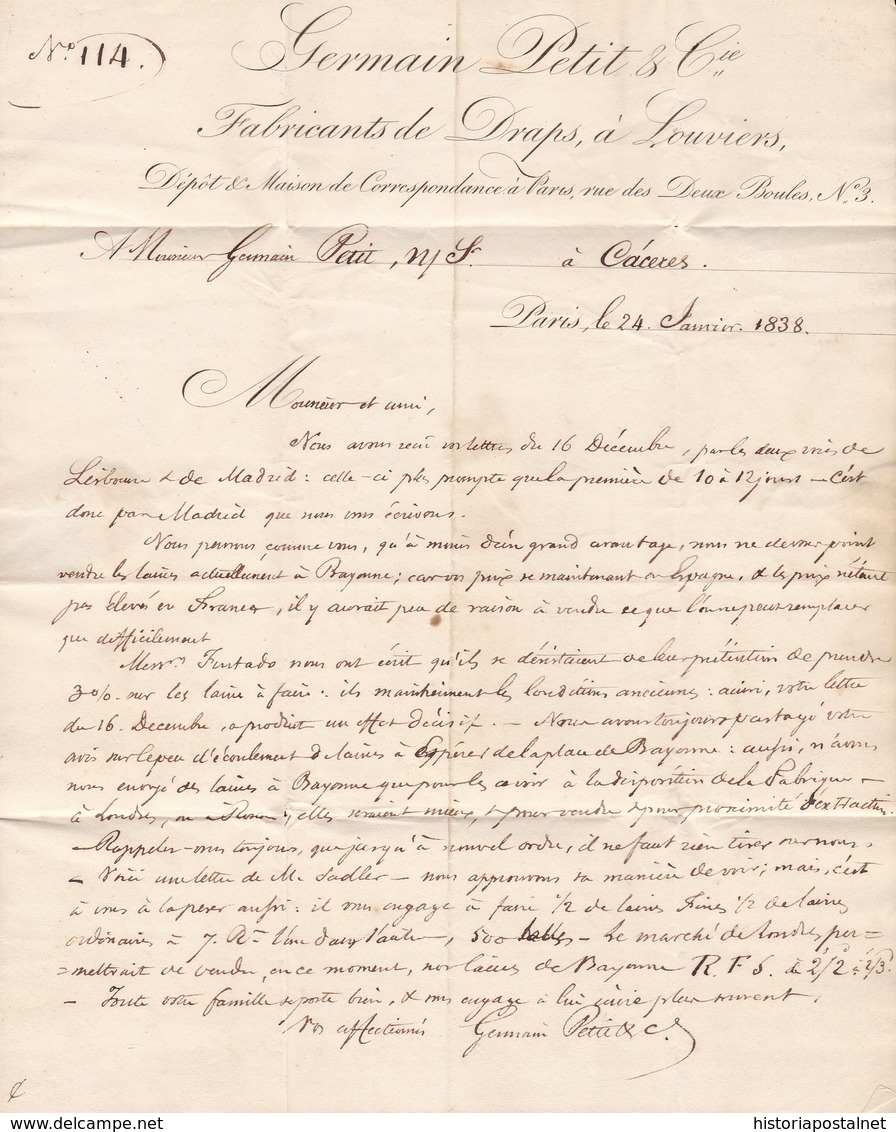 N.º 114.
Germain Petit & C.ie
Fabricants de Draps, à Louviers,
Dépôt & Maison de Correspondance à Paris, rue des Deux Boules, N.º 3.
A Monsieur Germain Petit, N/ Sr. à Cáceres.
Paris, le 24. Janvier. 1838.
Monsieur et ami,
Nous avons recu vos lettres du 16 Décembre, par les deux voies de
Lisbonne & de Madrid: celle-ci plus prompte que la première de 10 à 12 jours - C'est
donc par Madrid que nous vous écrivons.
Nous pensons comme vous, qu'à moins d'un grand avantage, nous ne devons point
vendre les laines actuellement à Bayonne; car vos prix se maintenant en Espagne, & les prix n'étant
pas élevés en France, il y aurait peu de raison à vendre ce que l'on ne peut remplacer
que difficilement
Mess.rs Furtado nous ont écrit qu'ils se désistaient de leur prétention de prendre
3 0/0 sur les laines à faire: ils maintiennent les conditions anciennes: ainsi, votre lettre
du 16. Decembre, a produit un effet décisif. - Nous avons toujours partagé votre
avis sur le peu d'écoulement de laines à espérer de la place de Bayonne: aussi, n'avons
nous envoyé des laines à Bayonne que pour les avoir à la disposition de la Fabrique -
à Londres, ou à Rouen, elles seraient mieux, & pour vendre & pour proximité d'extraction.
- Rappelez-vous toujours, que jusqu'à nouvel ordre, il ne faut rien tirer sur nous
- Voici une lettre de M. Sadler - nous approuvons sa manière de voir; mais, c'est
à vous à la peser aussi: il vous engage à faire 1/2 de laines Fines 1/2 de laines
ordinaires à 7. R.x l'une dans l'autre, 500 balles - Le marché de Londres per=
=mettrait de vendre, en ce moment, nos laines de Bayonne R. F. S. de 2/2 à 2/3.
- Toute votre famille se porte bien, & vous engage à lui écrire plus souvent,
Vos affectionnés Germain Petit & C.
historiapostalnet